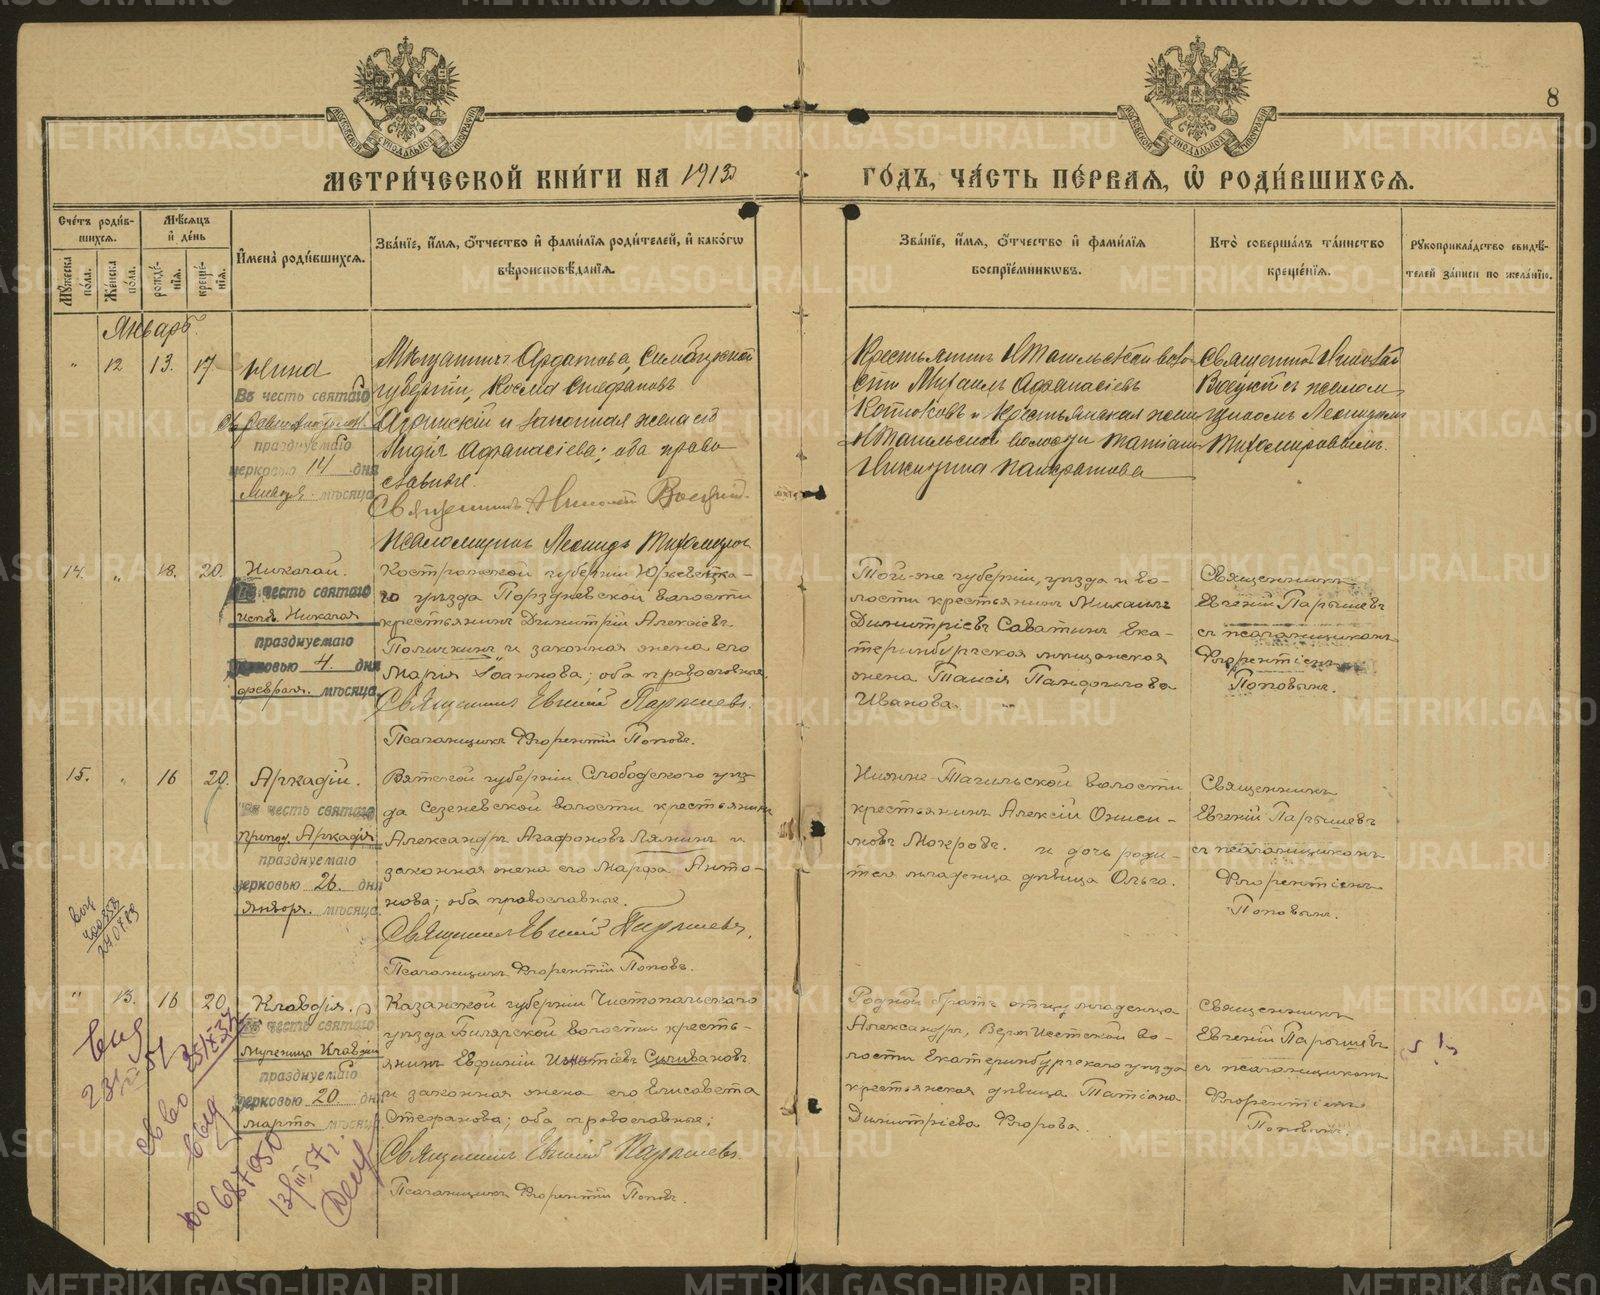 8
МЕТРИ́ЧЕСКОЙ КНИ́ГИ НА 1913 ГО́ДЪ, ЧА́СТЬ ПЕ́РВАЯ, Ѡ҆ РОДИ́ВШИХСЯ.
Сче́тъ роди́в-
шихся.
Мѣсяцъ
и҆ де́нь
Мꙋжеска по́ла.
Же́нска по́ла.
рожде́-нїя.
креще́-нїя.
И҆мена̀ роди́вшихся.
Зва́нїе, и҆́мя, ѻ҆́тчество и҆ фами́лїя роди́телей, и҆ како́гѡ
вѣроисповѣ́данїя.
Зва́нїе, и҆́мя, ѻ҆́тчество и҆ фами́лїя
воспрїе́мникѡвъ.
Кто̀ соверша́лъ та́инство
креще́нїя.
Рꙋкоприкла́дство свидѣ́-
телей за́писи по жела́нїю.
Январь.
" 12 13. 17 Нина
Въ честь святаго
празднуемаго
церковью 14 дня
Января мѣсяца
Мѣщанинъ Ардатова, Симбирской
губерніи, Косма Стефановъ
и законная жена его
Лидія Афанасіева; оба право
славные.
Священникъ Николай
Псаломщикъ Леонидъ Тихомировъ
Крестьянинъ Н Тагильской воло
сти Михаилъ Афанасіевъ
Котюковъ и Крестьянская жена
Н Тагильской волости Татіана
Никитина Панкратова
Священникъ Николай
съ псалом
щикомъ Леонидомъ
Тихомировымъ.
14. " 18. 20. Николай.
Въ честь святаго
испов. Николая
празднуемаго
церковью 4. дня
февраля. мѣсяца
Костромской губерніи Юрьевецка-
го уѣзда Порздневской волости
крестьянинъ Димитрій Алексіевъ
и законная жена его
Марія Іоаннова; оба православные.
Священникъ Евгеній Парышевъ.
Псаломщикъ Флорентій Поповъ.
Той-же губерніи, уѣзда и во-
лости крестьянинъ Михаилъ
Димитріевъ Саватинъ Ека-
теринбургская мѣщанская
жена Таисія Панфилова
Иванова.
Священникъ
Евгеній Парышевъ
съ псаломщикомъ
Флорентіемъ
Поповымъ.
15. " 16 20. Аркадій.
Въ честь святаго
препод. Аркадія
празднуемаго
церковью 26. дня
января. мѣсяца
Вятской губерніи Слободского уѣз-
да Сезеневской волости крестьянинъ
Александръ Агафоновъ Лялинъ и
законная жена его Марфа Анто-
нова; оба православные.
Священникъ Евгеній Парышевъ.
Псаломщикъ Флорентій Поповъ.
Нижне-Тагильской волости
крестьянинъ Алексій Ониси-
мовъ Мокровъ. и дочь роди-
теля младенца дѣвица Ольга.
Священникъ
Евгеній Парышевъ
съ псаломщикомъ
Флорентіемъ
Поповымъ.
" 13. 16 20. Клавдія.
Въ честь святаго
мученицы Клавдіи
празднуемаго
церковью 20. дня
марта мѣсяца
Казанской губерніи Чистопольскаго
уѣзда Билярской волости кресть-
янинъ Ефимій Селивановъ
и законная жена его Елисавета
Стефанова; оба православные;
Священникъ Евгеній Парышевъ.
Псаломщикъ Флорентій Поповъ.
Родной братъ отца младенца
Александръ, Верхъ Исетской во-
лости Екатеринбургскаго уѣзда
крестьянская дѣвица Татіана
Димитріева Флорова.
Священникъ
Евгеній Парышевъ
съ псаломщикомъ
Флорентіемъ
Поповымъ.
13/III 57г.
METRIKI.GASO-URAL.RU